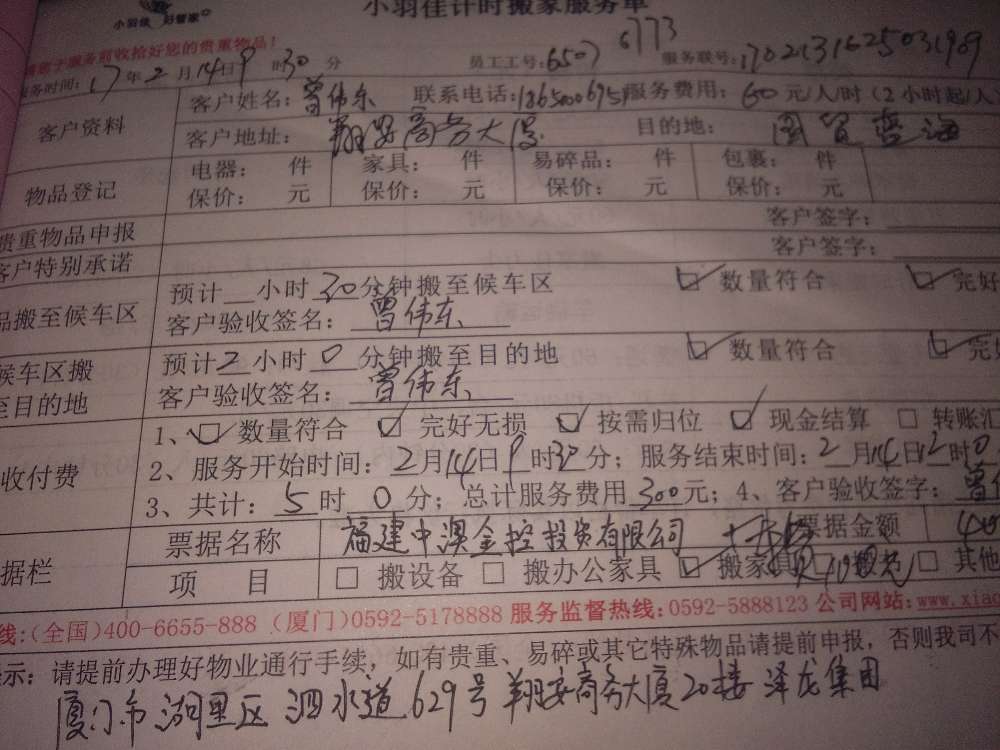 小羽佳 好管家
小羽佳计时搬家服务单
请您于服务前收拾好您的贵重物品!
服务时间:17年2月14日9时30分 员工工号:6507 6773 服务联号:1702131625031909
客户资料
客户姓名:曾伟东 联系电话: 服务费用:60元/人/时(2小时起/人
客户地址:翔安商务大厦 目的地:国贸蓝海
物品登记
电器: 件 家具: 件 易碎品: 件 包裹: 件
保价: 元 保价: 元 保价: 元 保价: 元
贵重物品申报 客户签字:
客户特别承诺 客户签字:
品搬至候车区
预计 小时30分钟搬至候车区 数量符合 完好
客户验收签名:曾伟东
候车区搬至目的地
预计2小时0分钟搬至目的地 数量符合 完好
客户验收签名:曾伟东
收付费
1、数量符合 完好无损 按需归位 现金结算 转账汇
2、服务开始时间:2月14日9时30分;服务结束时间:2月14日12时0
3、共计:5时0分;总计服务费用300元;4、客户验收签字:曾伟
据栏
票据名称 福建中澳金控投资有限公司 票据金额 400
项目 搬设备 搬办公家具 搬家具 其他
线:(全国)400-6655-888 (厦门)0592-5178888 服务监督热线:0592-5888123 公司网站:www.xiao
示:请提前办理好物业通行手续,如有贵重、易碎或其它特殊物品请提前申报,否则我司不
厦门市湖里区泗水道629号翔安商务大厦20楼泽龙集团